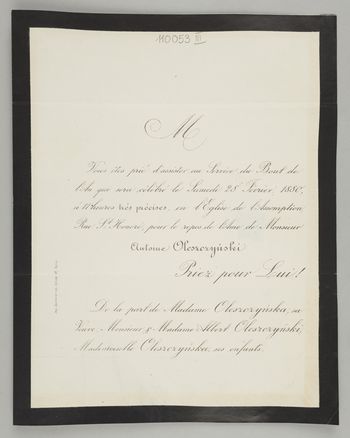 110053 III
M
Vous êtes prié d'assister au Service du Bout de
l'An qui sera célébré le Samedi 28 Février 1880,
à 11 heures très précises, en l'Eglise de l'Assomption
Rue St Honoré, pour le repos de l'âme de Monsieur
Antoine Oleszczyński
Priez pour Lui!
De la part de Madame Oleszczyńska, sa
Veuve, Monsieur & Madame Albert Oleszczyński,
Mademoiselle Oleszczyńska, ses enfants.